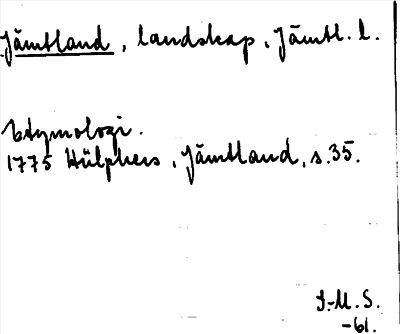 Jämtland, landskap, Jämtl. l.
Etymologi.
1775 Hülphers, Jämtland, s.35.
I.-M. S.
-61.